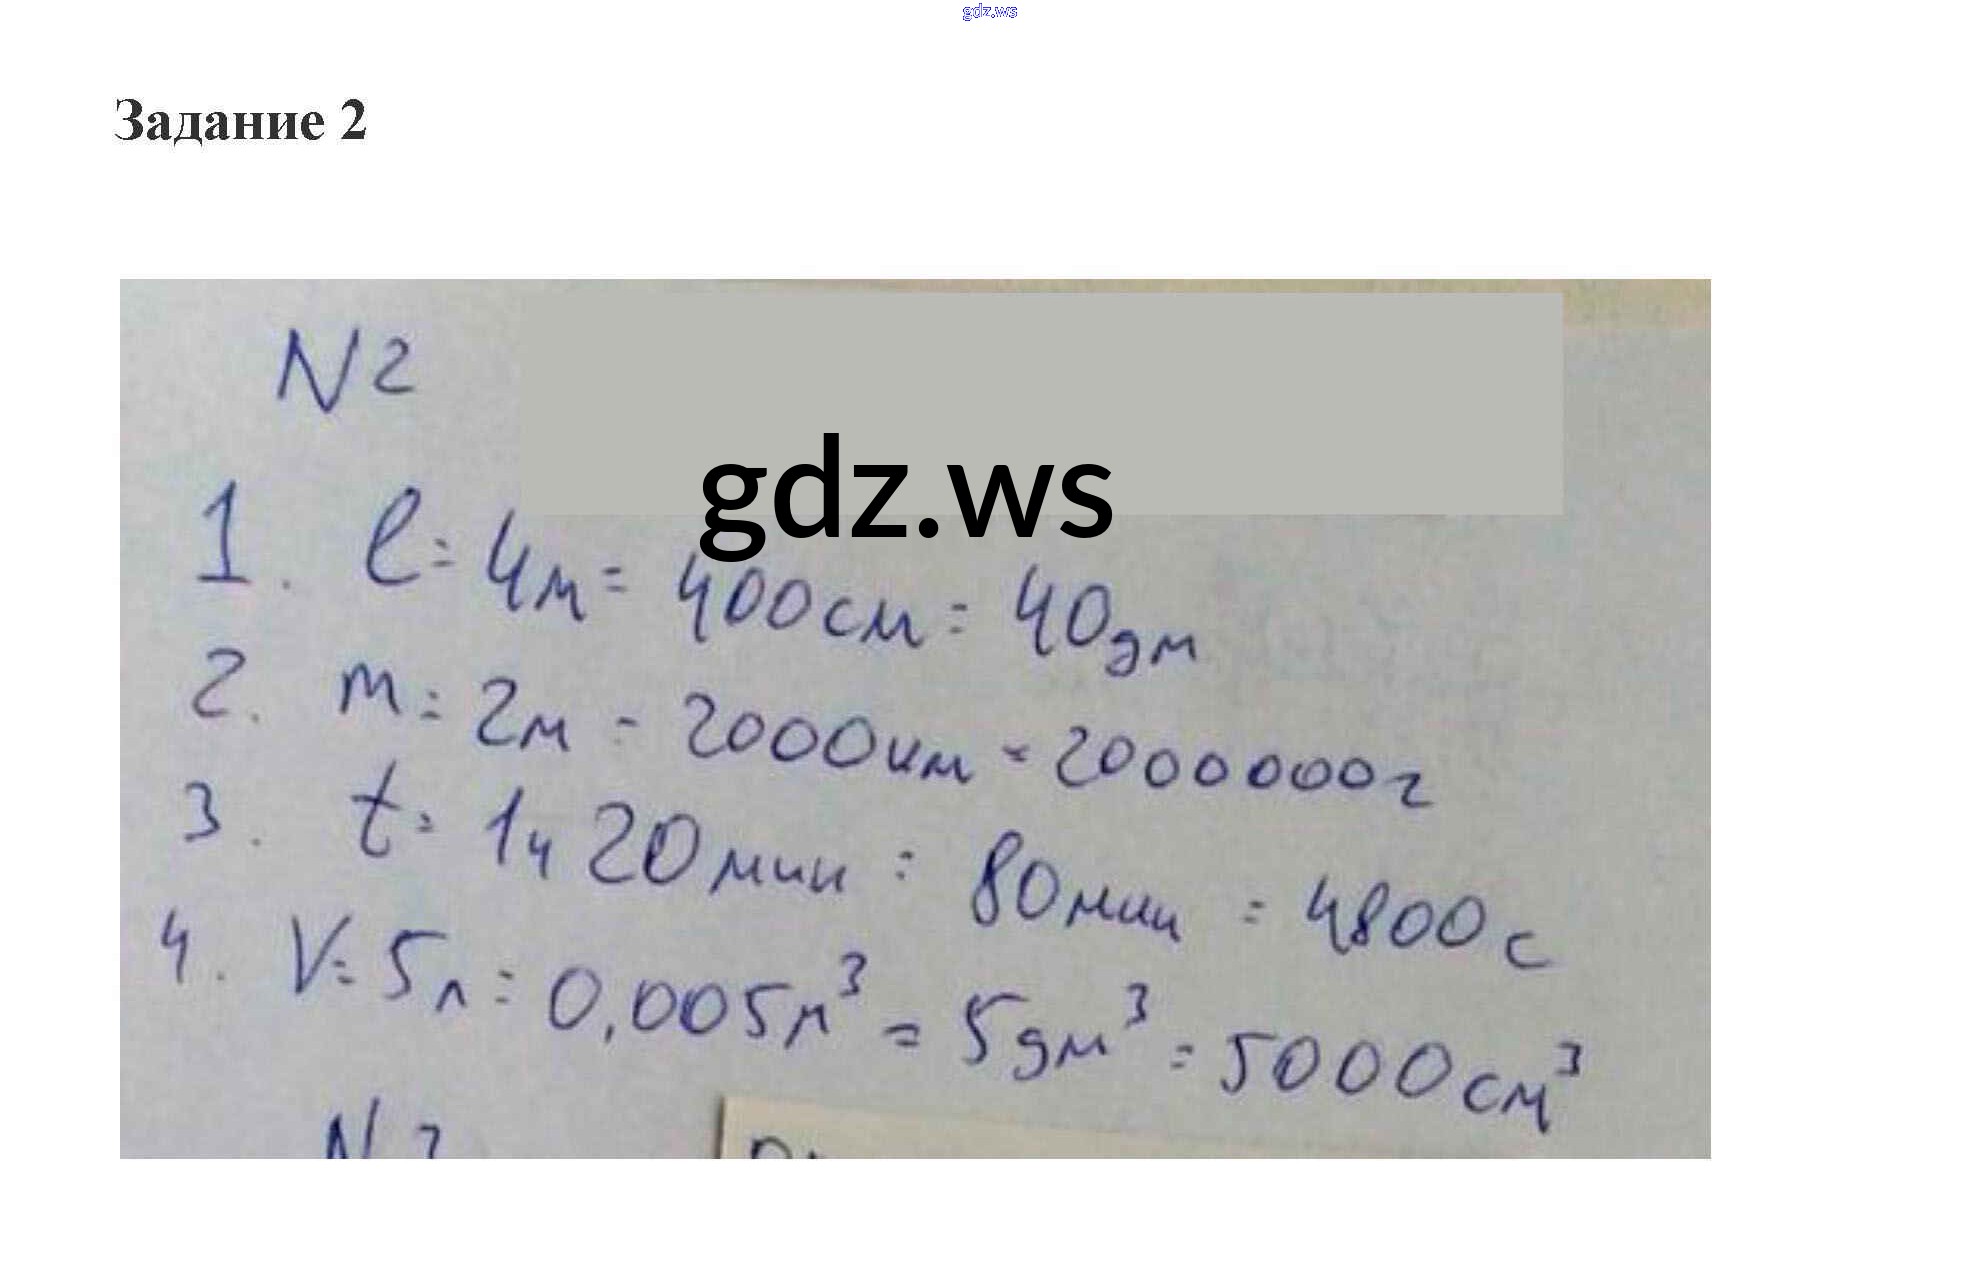 gdz.ws
Задание 2
N2
gdz.ws
1. l = 4м = 400см = 40дм
2. m = 2м = 2000км = 2000000г
3. t = 1ч 20мин = 80мин = 4800с
4. V = 5л = 0,005м³ = 5дм³ = 5000см³